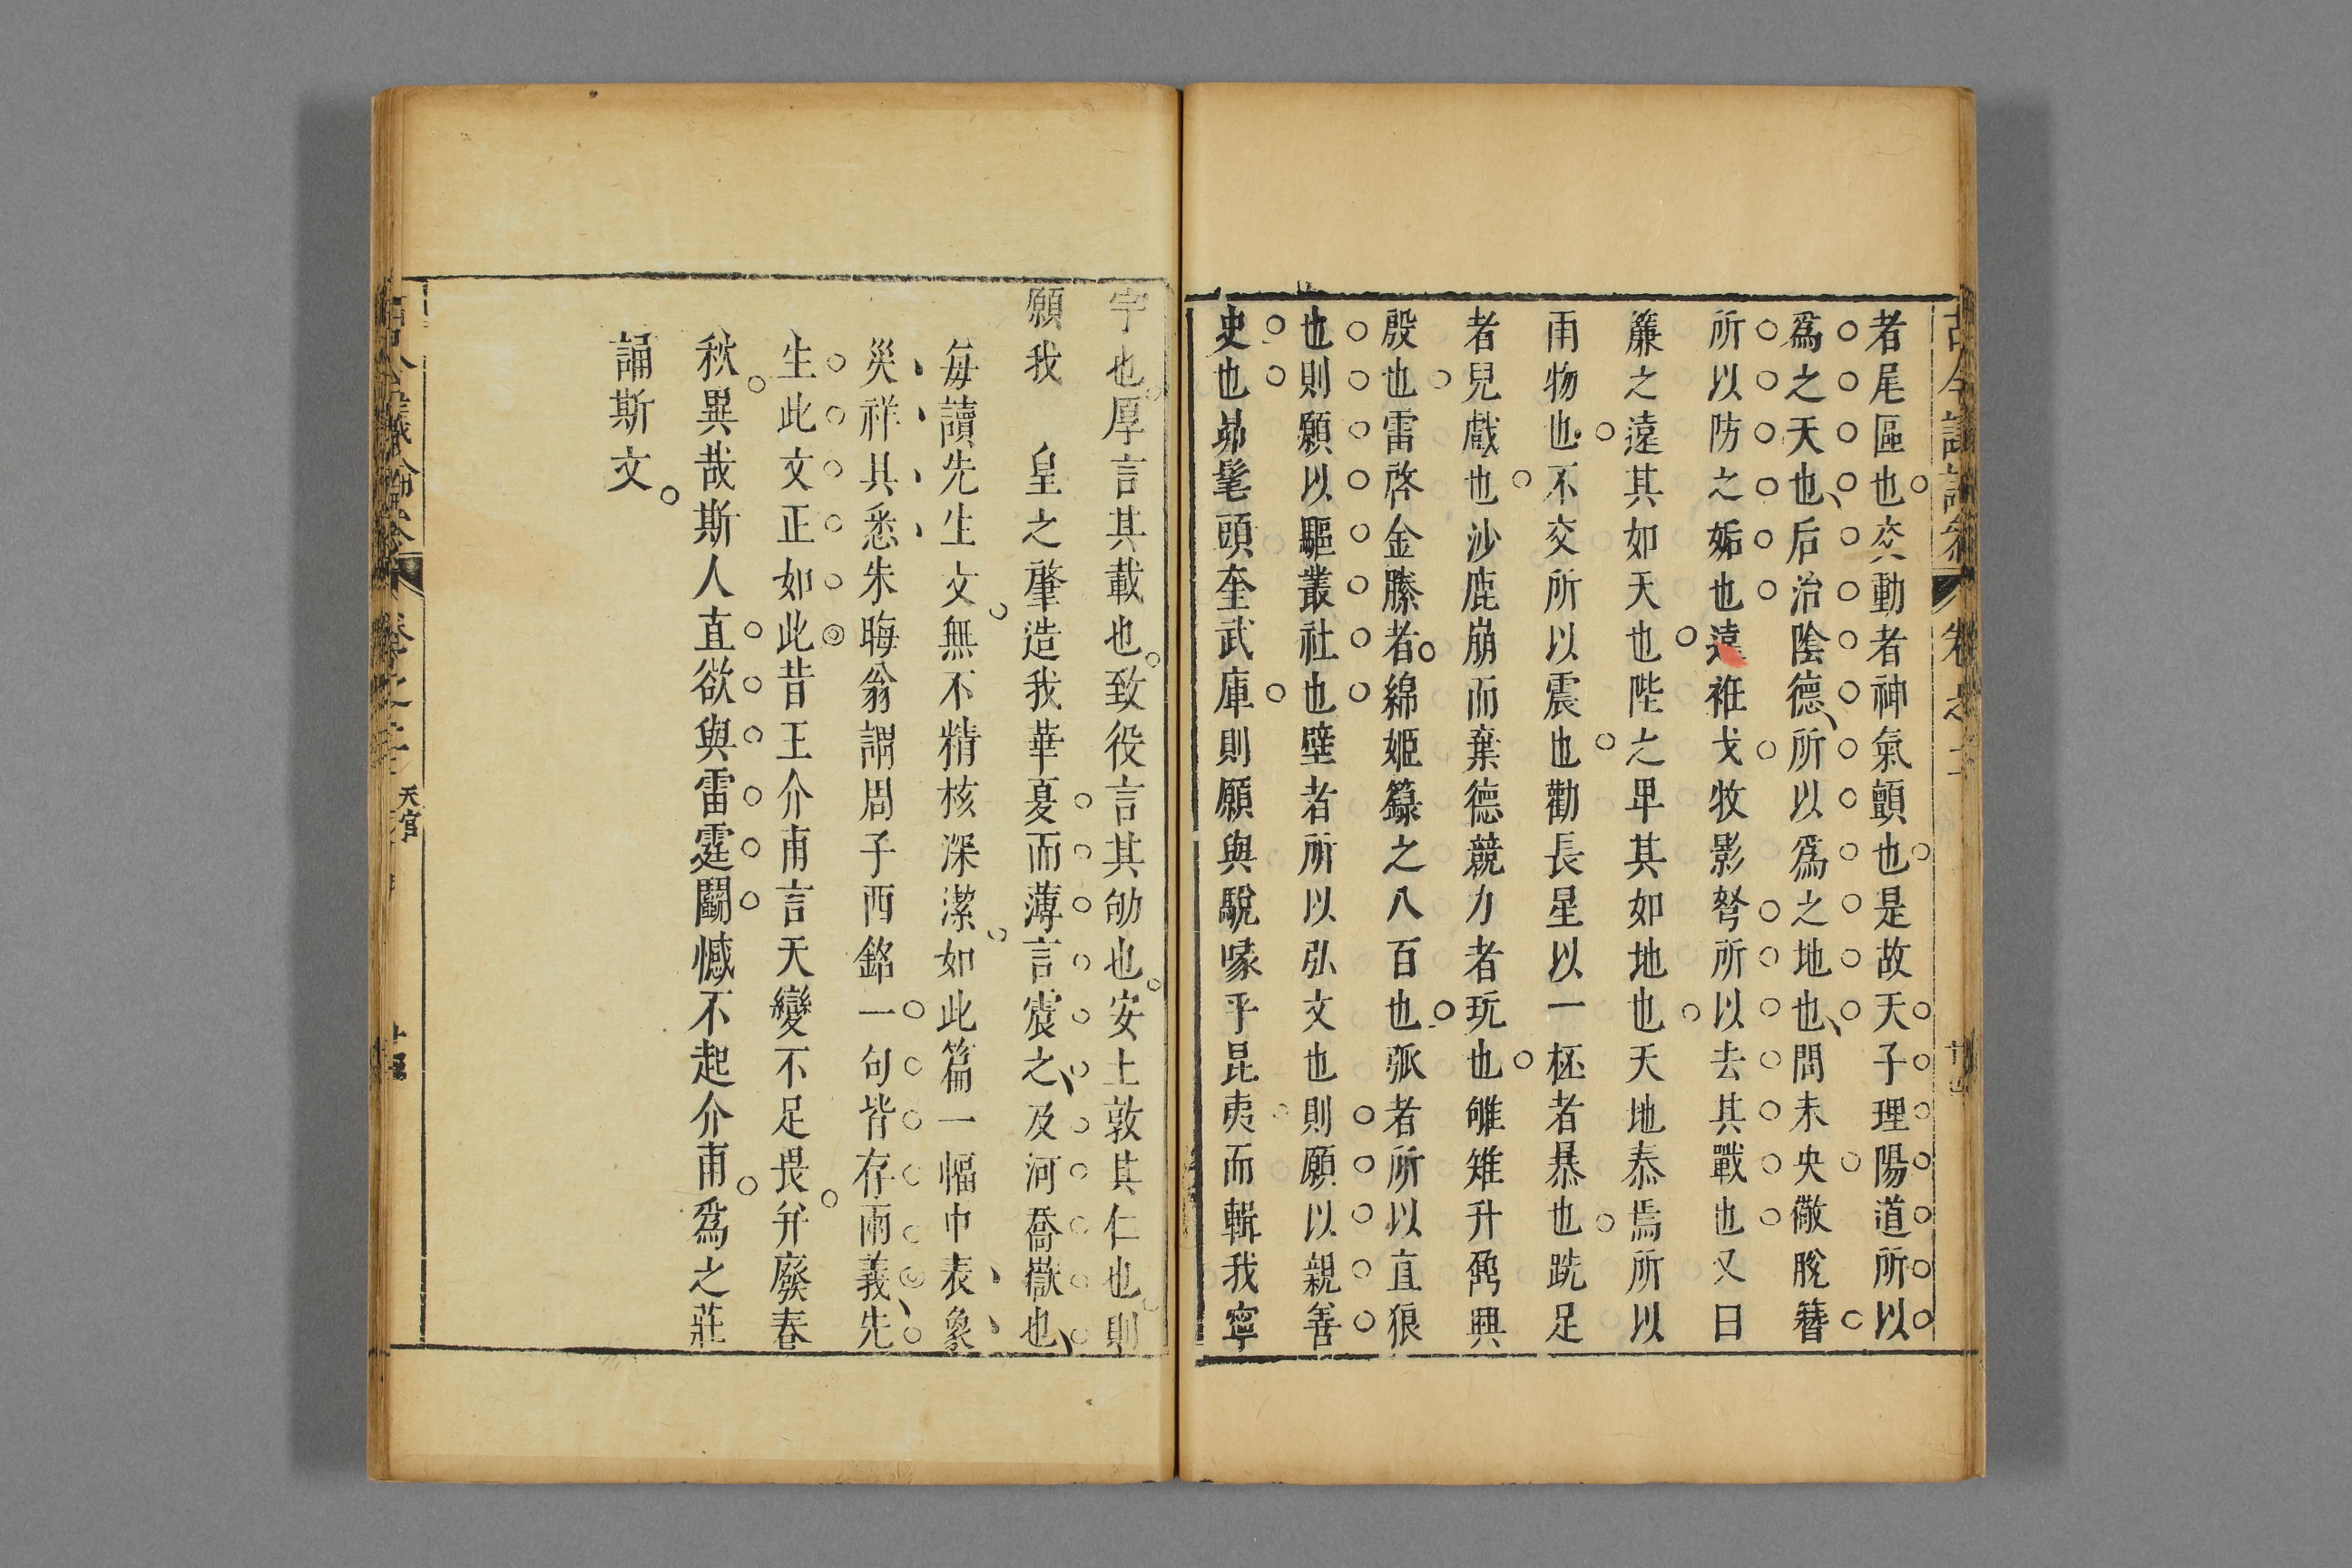 者尾區也灾動者神氣顫也是故天子理陽道所以
爲之天也后治陰德所以爲之地也問未央儆脫簪
所以防之姤也遠袵戈牧影弩所以去其戰也又曰
簾之遠其如天也陛之卑其如地也天地泰焉所以
雨物也不交所以震也勸長星以一柸者㬥也跣足
者兒戲也沙鹿崩而棄德競力者玩也雊雉升鼎興
殷也雷啓金縢者綿姬籙之八百也弧者所以直狼
也則願以驅叢社也壁者所以弘文也則願以親善
史也昴髦頭奎武庫則願與駾喙乎昆夷而輯我寧
宇也厚言其載也致役言其劬也安土敦其仁也則
願我　皇之肇造我華夏而薄言震之及河喬嶽也
每讀先生文無不精核深潔如此篇一幅巾表象
災祥具悉朱晦翁謂周子西銘一句皆存兩義先
生此文正如此昔王介甫言天變不足畏弁廢春
秋異哉斯人直欲與雷霆鬭憾不起介甫爲之莊
誦斯文
古今議論參 卷之
天官